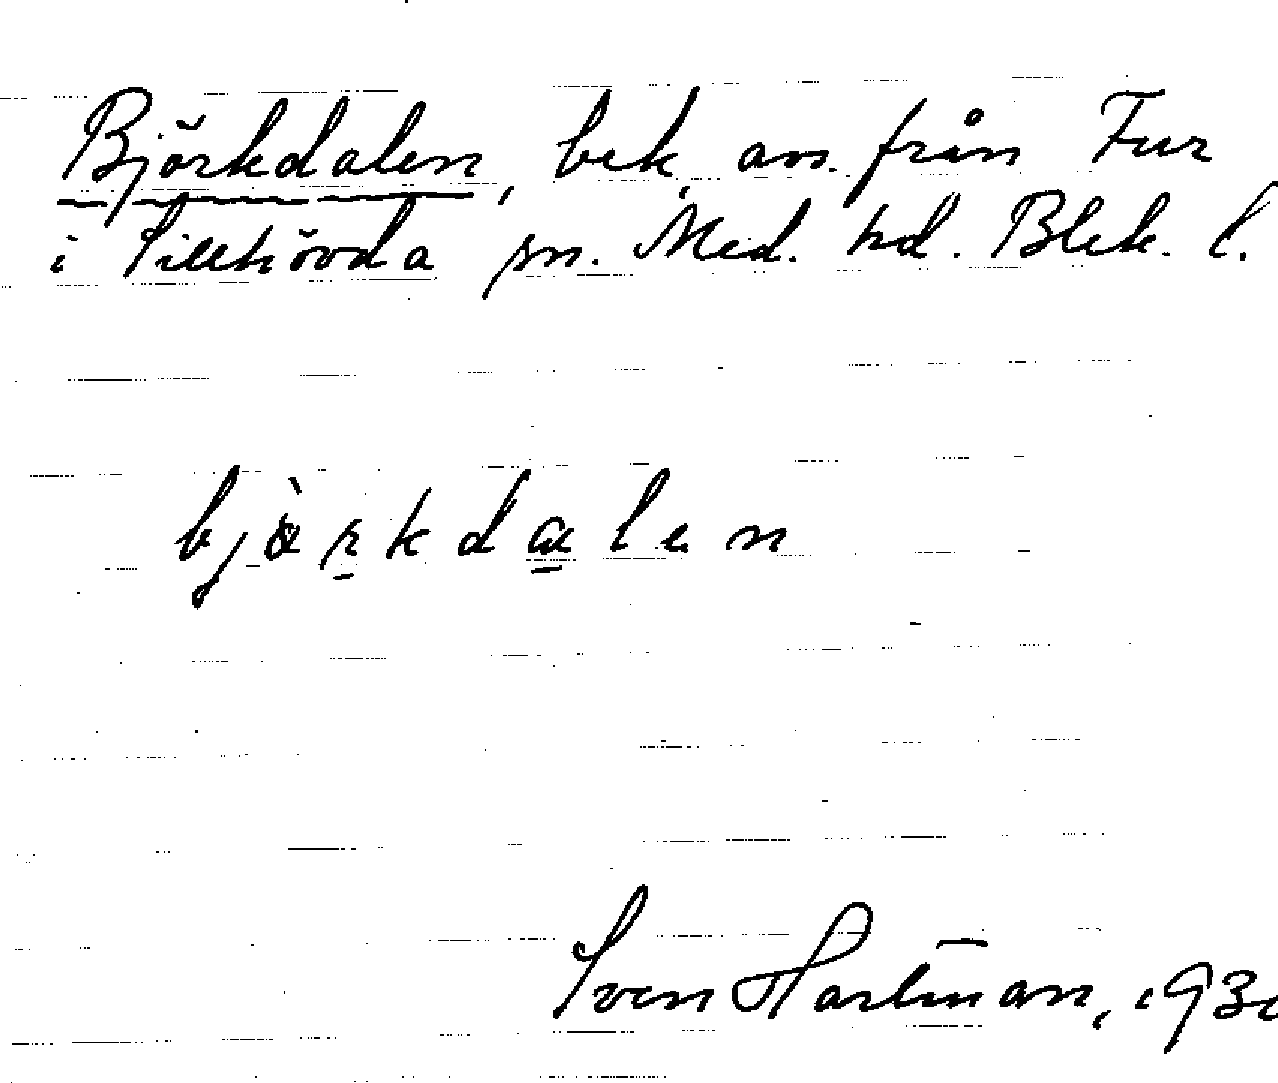 Björkdalen, bek. avs. från Fur
i Sillhövda sn. Med. hd. Blek. l.
björkdalen
Sven Hartman, 193